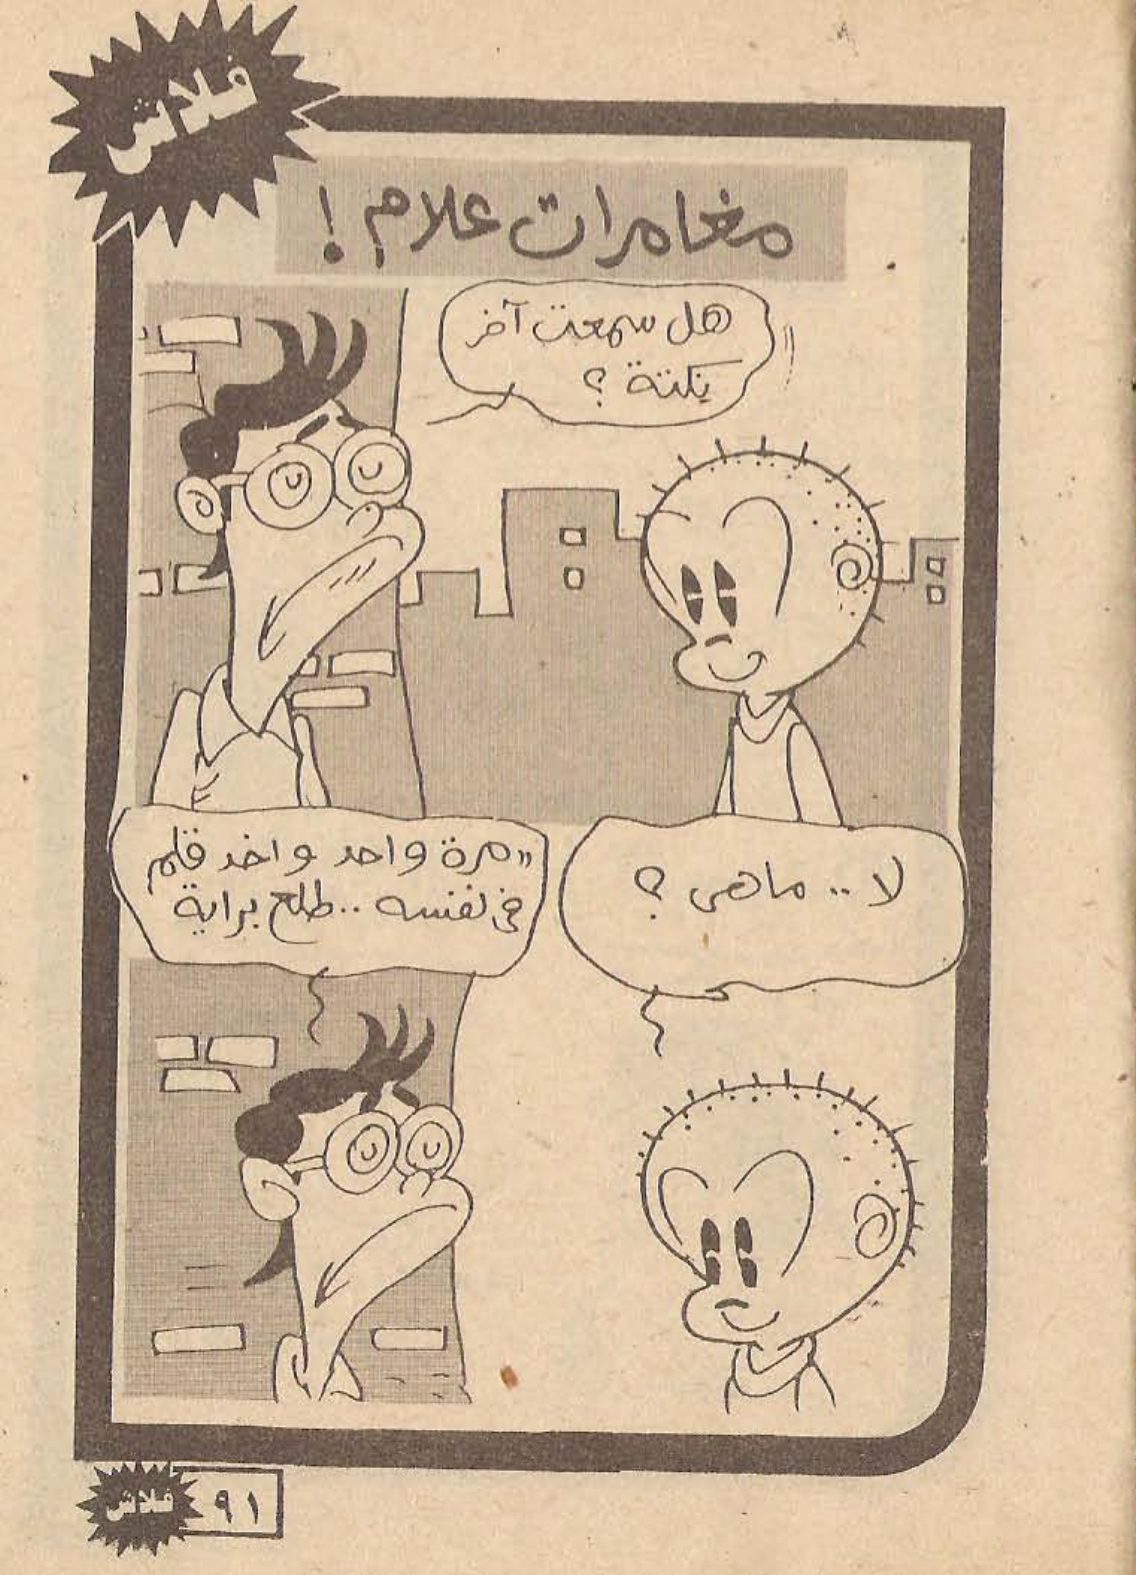 فلاش
مغامرات علام !
هل سمعت آخر
نكتة ؟
لا .. ماهى ؟
"مرة واحد واخد قلم
فى نفسه .. طلع براية
فلاش
٩١